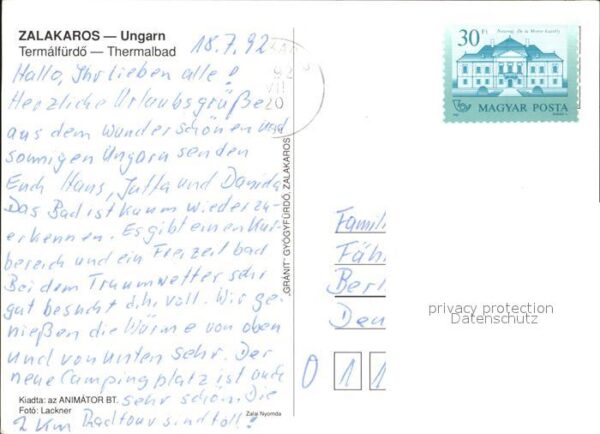 ZALAKAROS — Ungarn
Termálfürdő — Thermalbad
18.7.92
Hallo, Ihr lieben alle!
Herzliche Urlaubsgrüße
aus dem wunderschönen und
sonnigen Ungarn senden
Euch Hans, Jutta und Daniela
Das Bad ist kaum wiederzu-
erkennen. Es gibt einen Kur-
bereich und ein Freizeitbad
Bei dem Traumwetter sehr
gut besucht d.h. voll. Wir ge-
nießen die Wärme von oben
und von unten sehr. Der
neue Campingplatz ist auch
sehr schön. Die
2 Km Radtour sind toll!
Kiadta: az ANIMÁTOR BT.
Fotó: Lackner
Zalai Nyomda
„GRÁNIT” GYÓGYFÜRDŐ, ZALAKAROS
92
VII
20
30 Ft
MAGYAR POSTA
Famili
Fäh
Berl
Deu
0 1 1
privacy protection
Datenschutz